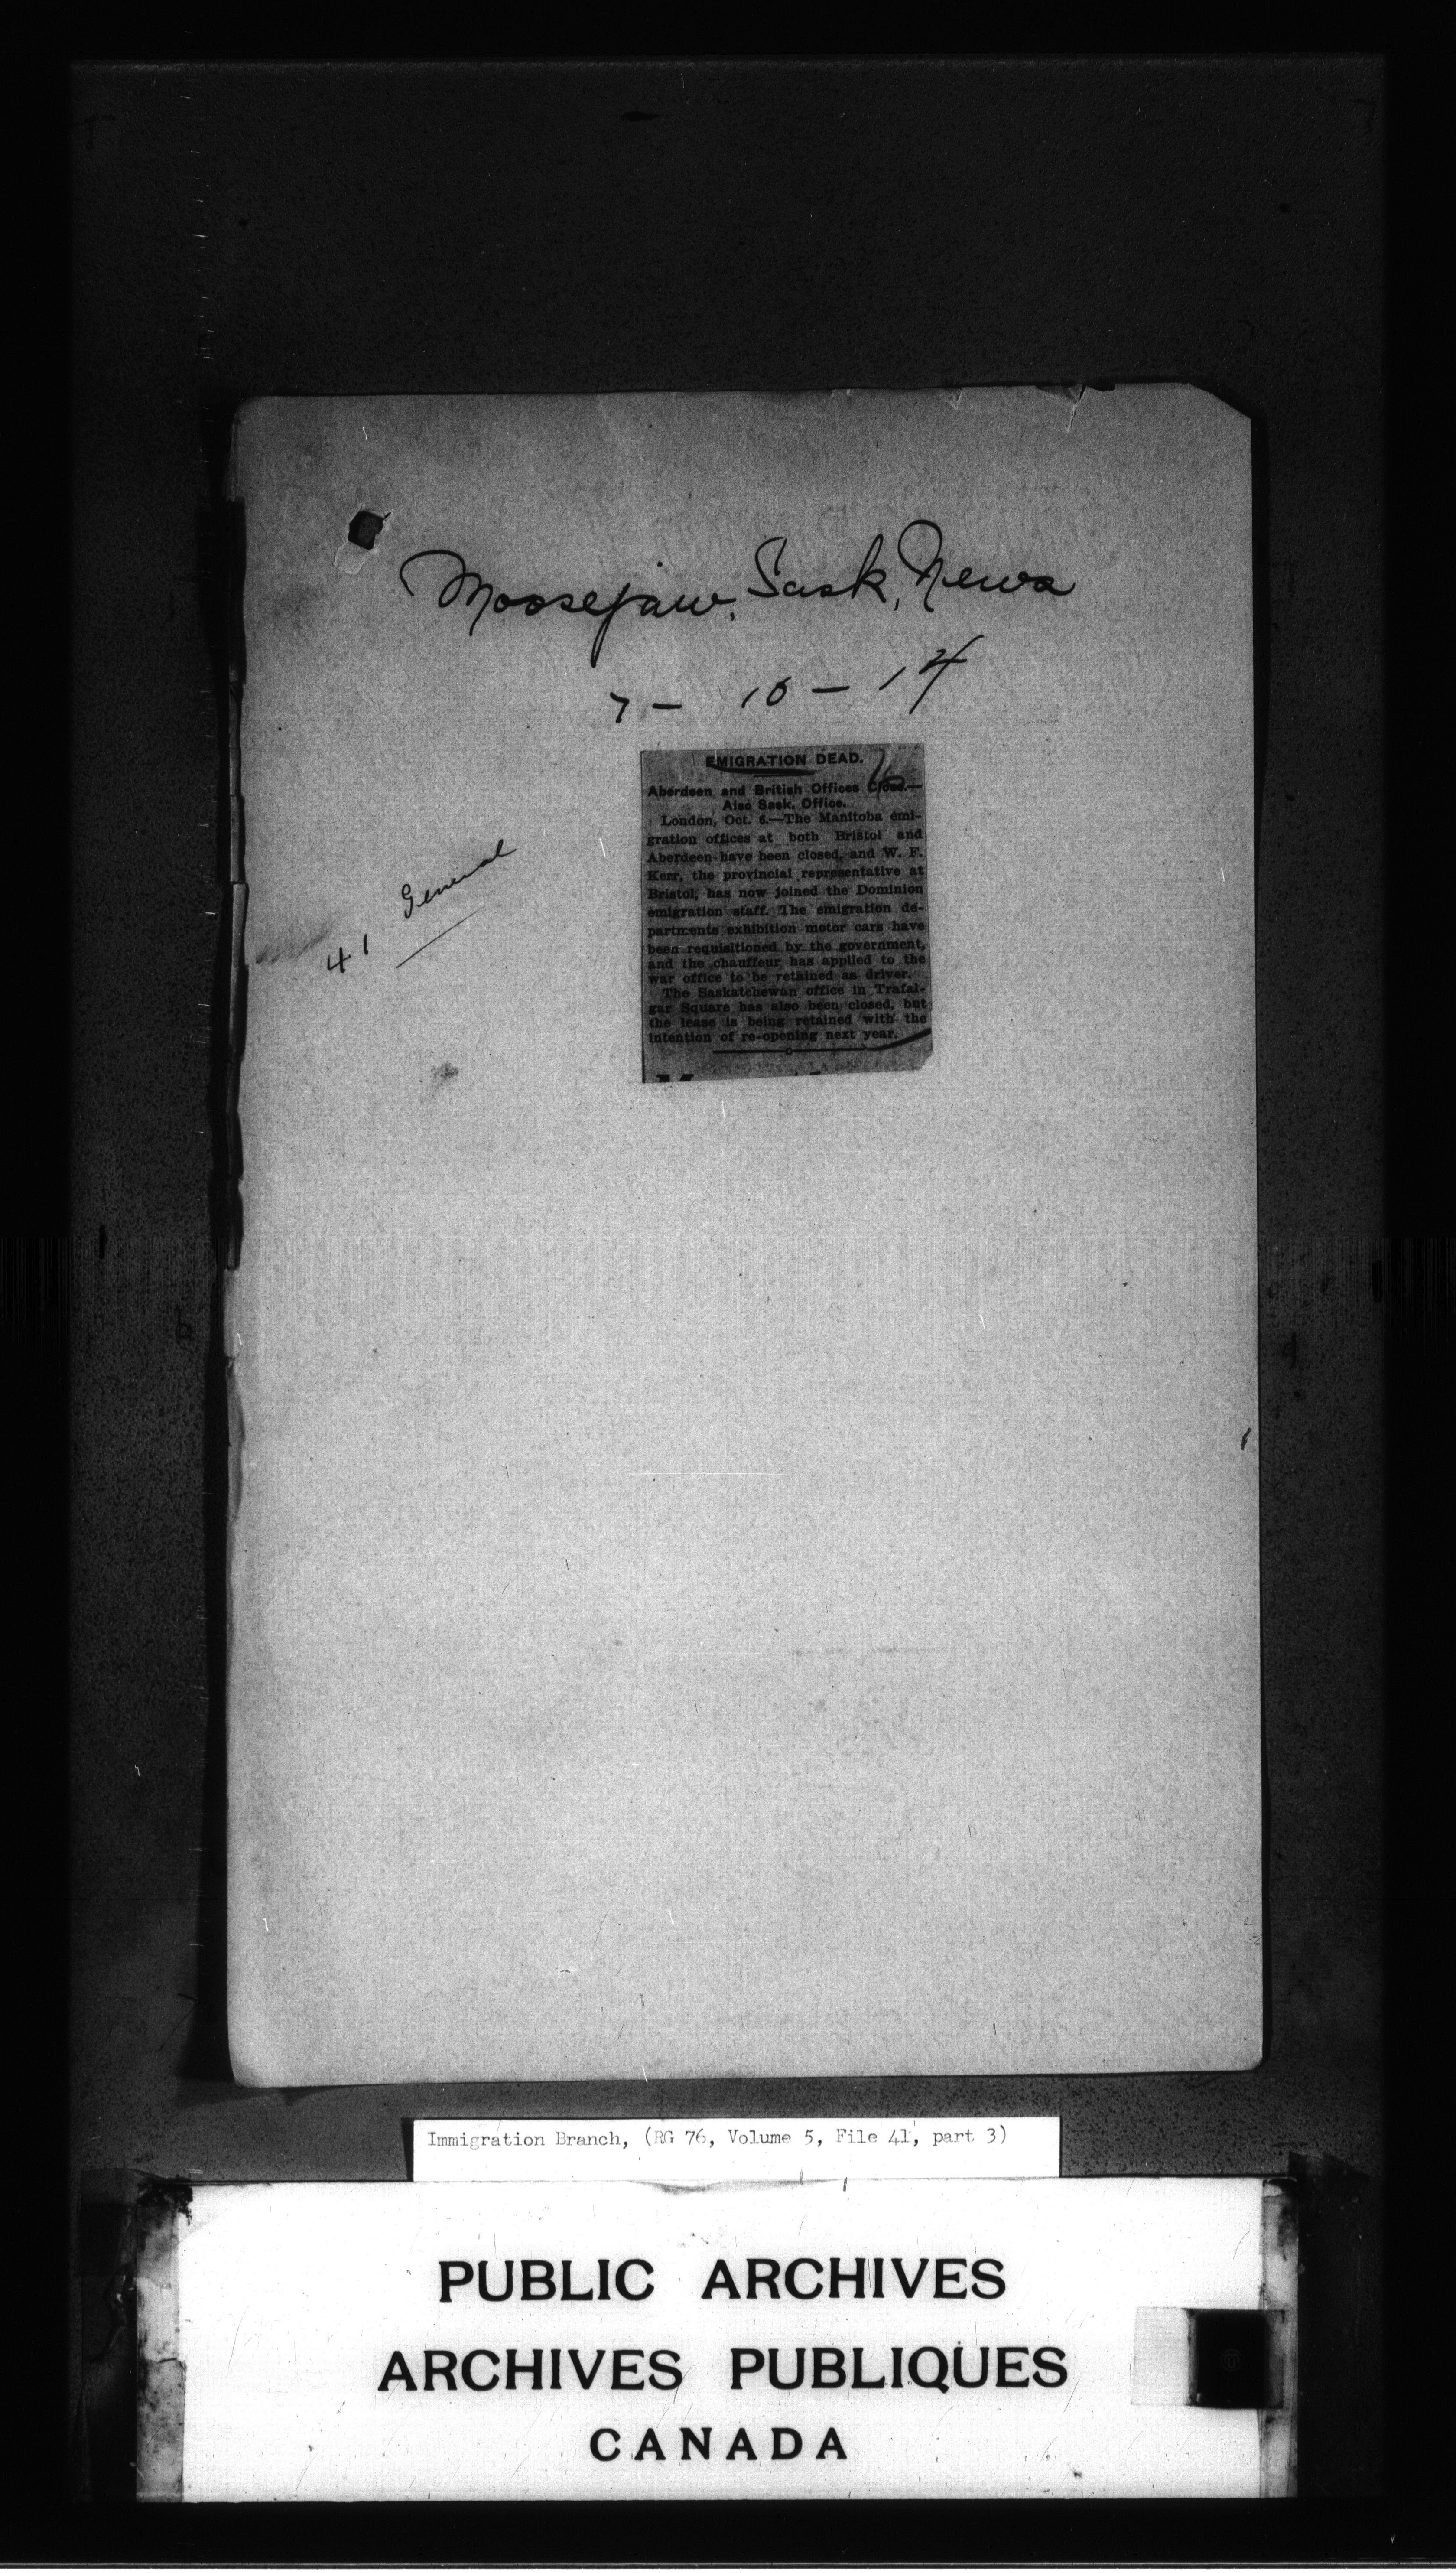 Moosejaw, Sask, News
7 - 10 - 14
EMIGRATION DEAD.
Aberdeen and British Offices Close.—
Also Sask. Office.
London, Oct. 6.—The Manitoba emi-
gration offices at both Bristol and
Aberdeen have been closed, and W. F.
Kerr, the provincial representative at
Bristol, has now joined the Dominion
emigration staff. The emigration de-
partments exhibition motor cars have
been requisitioned by the government,
and the chauffeur has applied to the
war office to be retained as driver.
The Saskatchewan office in Trafal-
gar Square has also been closed, but
the lease is being retained with the
intention of re-opening next year.
41 General
Immigration Branch, (RG 76, Volume 5, File 41, part 3)
PUBLIC ARCHIVES
ARCHIVES PUBLIQUES
CANADA